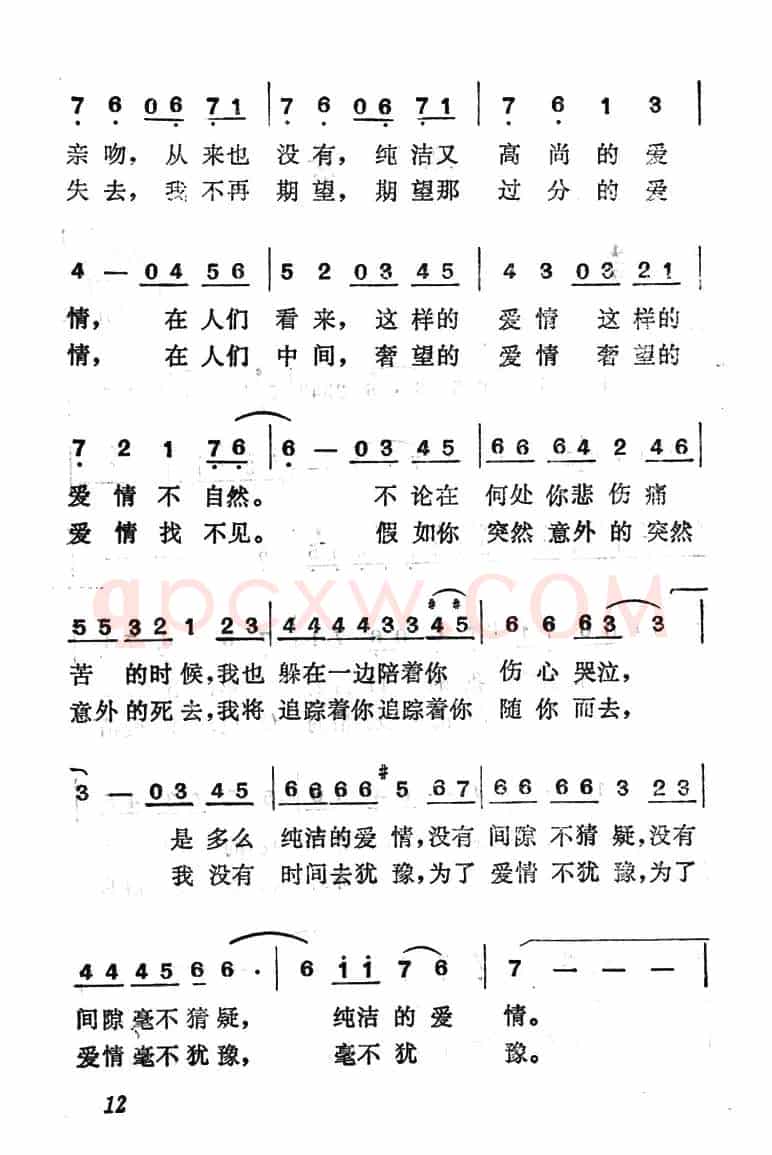 7 6 0 6 7 1 | 7 6 0 6 7 1 | 7 6 1 3 |
亲吻，从来也 没有，纯洁又 高尚的爱
失去，我不再 期望，期望那 过分的爱
4 — 0 4 5 6 | 5 2 0 3 4 5 | 4 3 0 3 2 1 |
情， 在人们 看来，这样的 爱情 这样的
情， 在人们 中间，奢望的 爱情 奢望的
7 2 1 7 6 | 6 — 0 3 4 5 | 6 6 6 6 4 2 4 6 |
爱情不 自然。 不论在 何处你悲伤痛
爱情找 不见。 假如你 突然意外的突然
qpcxw.COM
5 5 3 2 1 2 3 | 4 4 4 4 3 3 #4 #5 | 6 6 6 3 3 |
苦 的时候，我也 躲在一边陪着你 伤心哭泣，
意外的死去，我将 追踪着你追踪着你 随你而去，
3 — 0 3 4 5 | 6 6 6 6 #5 6 7 | 6 6 6 6 3 2 3 |
是多么 纯洁的爱情，没有 间隙不猜疑，没有
我没有 时间去犹豫，为了 爱情不犹豫，为了
4 4 4 5 6 6 · | 6 i i 7 6 | 7 — — — |
间隙毫不猜疑， 纯洁的爱 情。
爱情毫不犹豫， 毫不犹 豫。
12